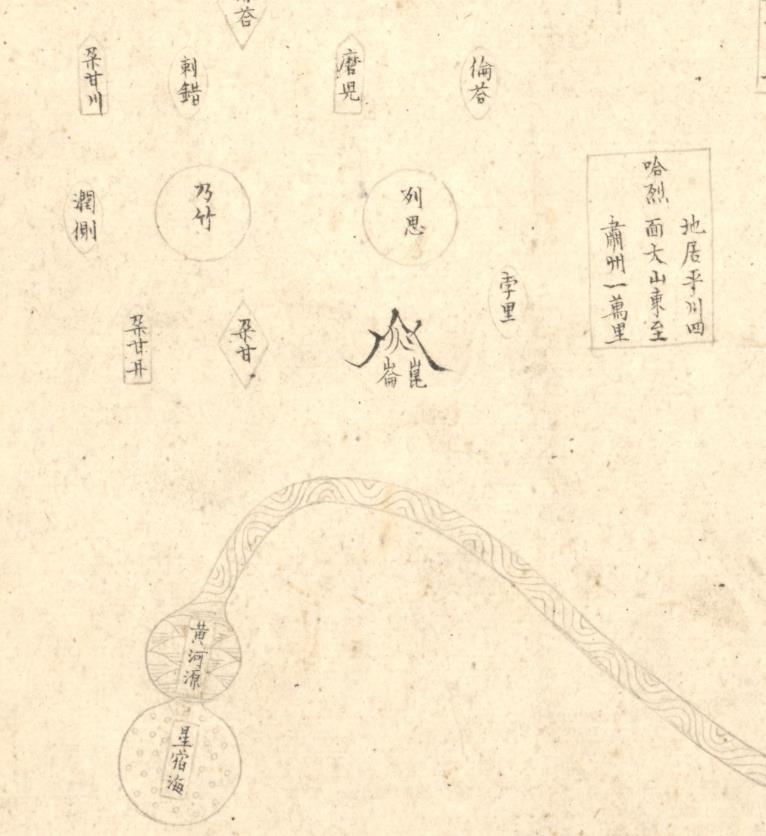 答
朶甘川
剌錯
磨児
倫答
哈烈
地居平川四
面大山東至
肅州一萬里
潤側
乃竹
列思
孛里
朶甘丹
朶甘
崑崙
黄河源
星宿海